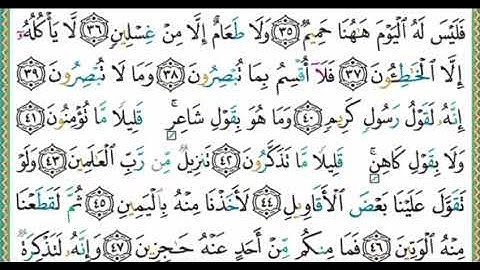 فَلَيْسَ لَهُ ٱلْيَوْمَ هَٰهُنَا حَمِيمٌ ٣٥ وَلَا طَعَامٌ إِلَّا مِنْ غِسْلِينٍ ٣٦ لَّا يَأْكُلُهُۥٓ
إِلَّا ٱلْخَٰطِـُٔونَ ٣٧ فَلَآ أُقْسِمُ بِمَا تُبْصِرُونَ ٣٨ وَمَا لَا تُبْصِرُونَ ٣٩
إِنَّهُۥ لَقَوْلُ رَسُولٍ كَرِيمٍ ٤٠ وَمَا هُوَ بِقَوْلِ شَاعِرٍ ۚ قَلِيلًا مَّا تُؤْمِنُونَ ٤١
وَلَا بِقَوْلِ كَاهِنٍ ۚ قَلِيلًا مَّا تَذَكَّرُونَ ٤٢ تَنزِيلٌ مِّن رَّبِّ ٱلْعَٰلَمِينَ ٤٣ وَلَوْ
تَقَوَّلَ عَلَيْنَا بَعْضَ ٱلْأَقَاوِيلِ ٤٤ لَأَخَذْنَا مِنْهُ بِٱلْيَمِينِ ٤٥ ثُمَّ لَقَطَعْنَا
مِنْهُ ٱلْوَتِينَ ٤٦ فَمَا مِنكُم مِّنْ أَحَدٍ عَنْهُ حَٰجِزِينَ ٤٧ وَإِنَّهُۥ لَتَذْكِرَةٌ